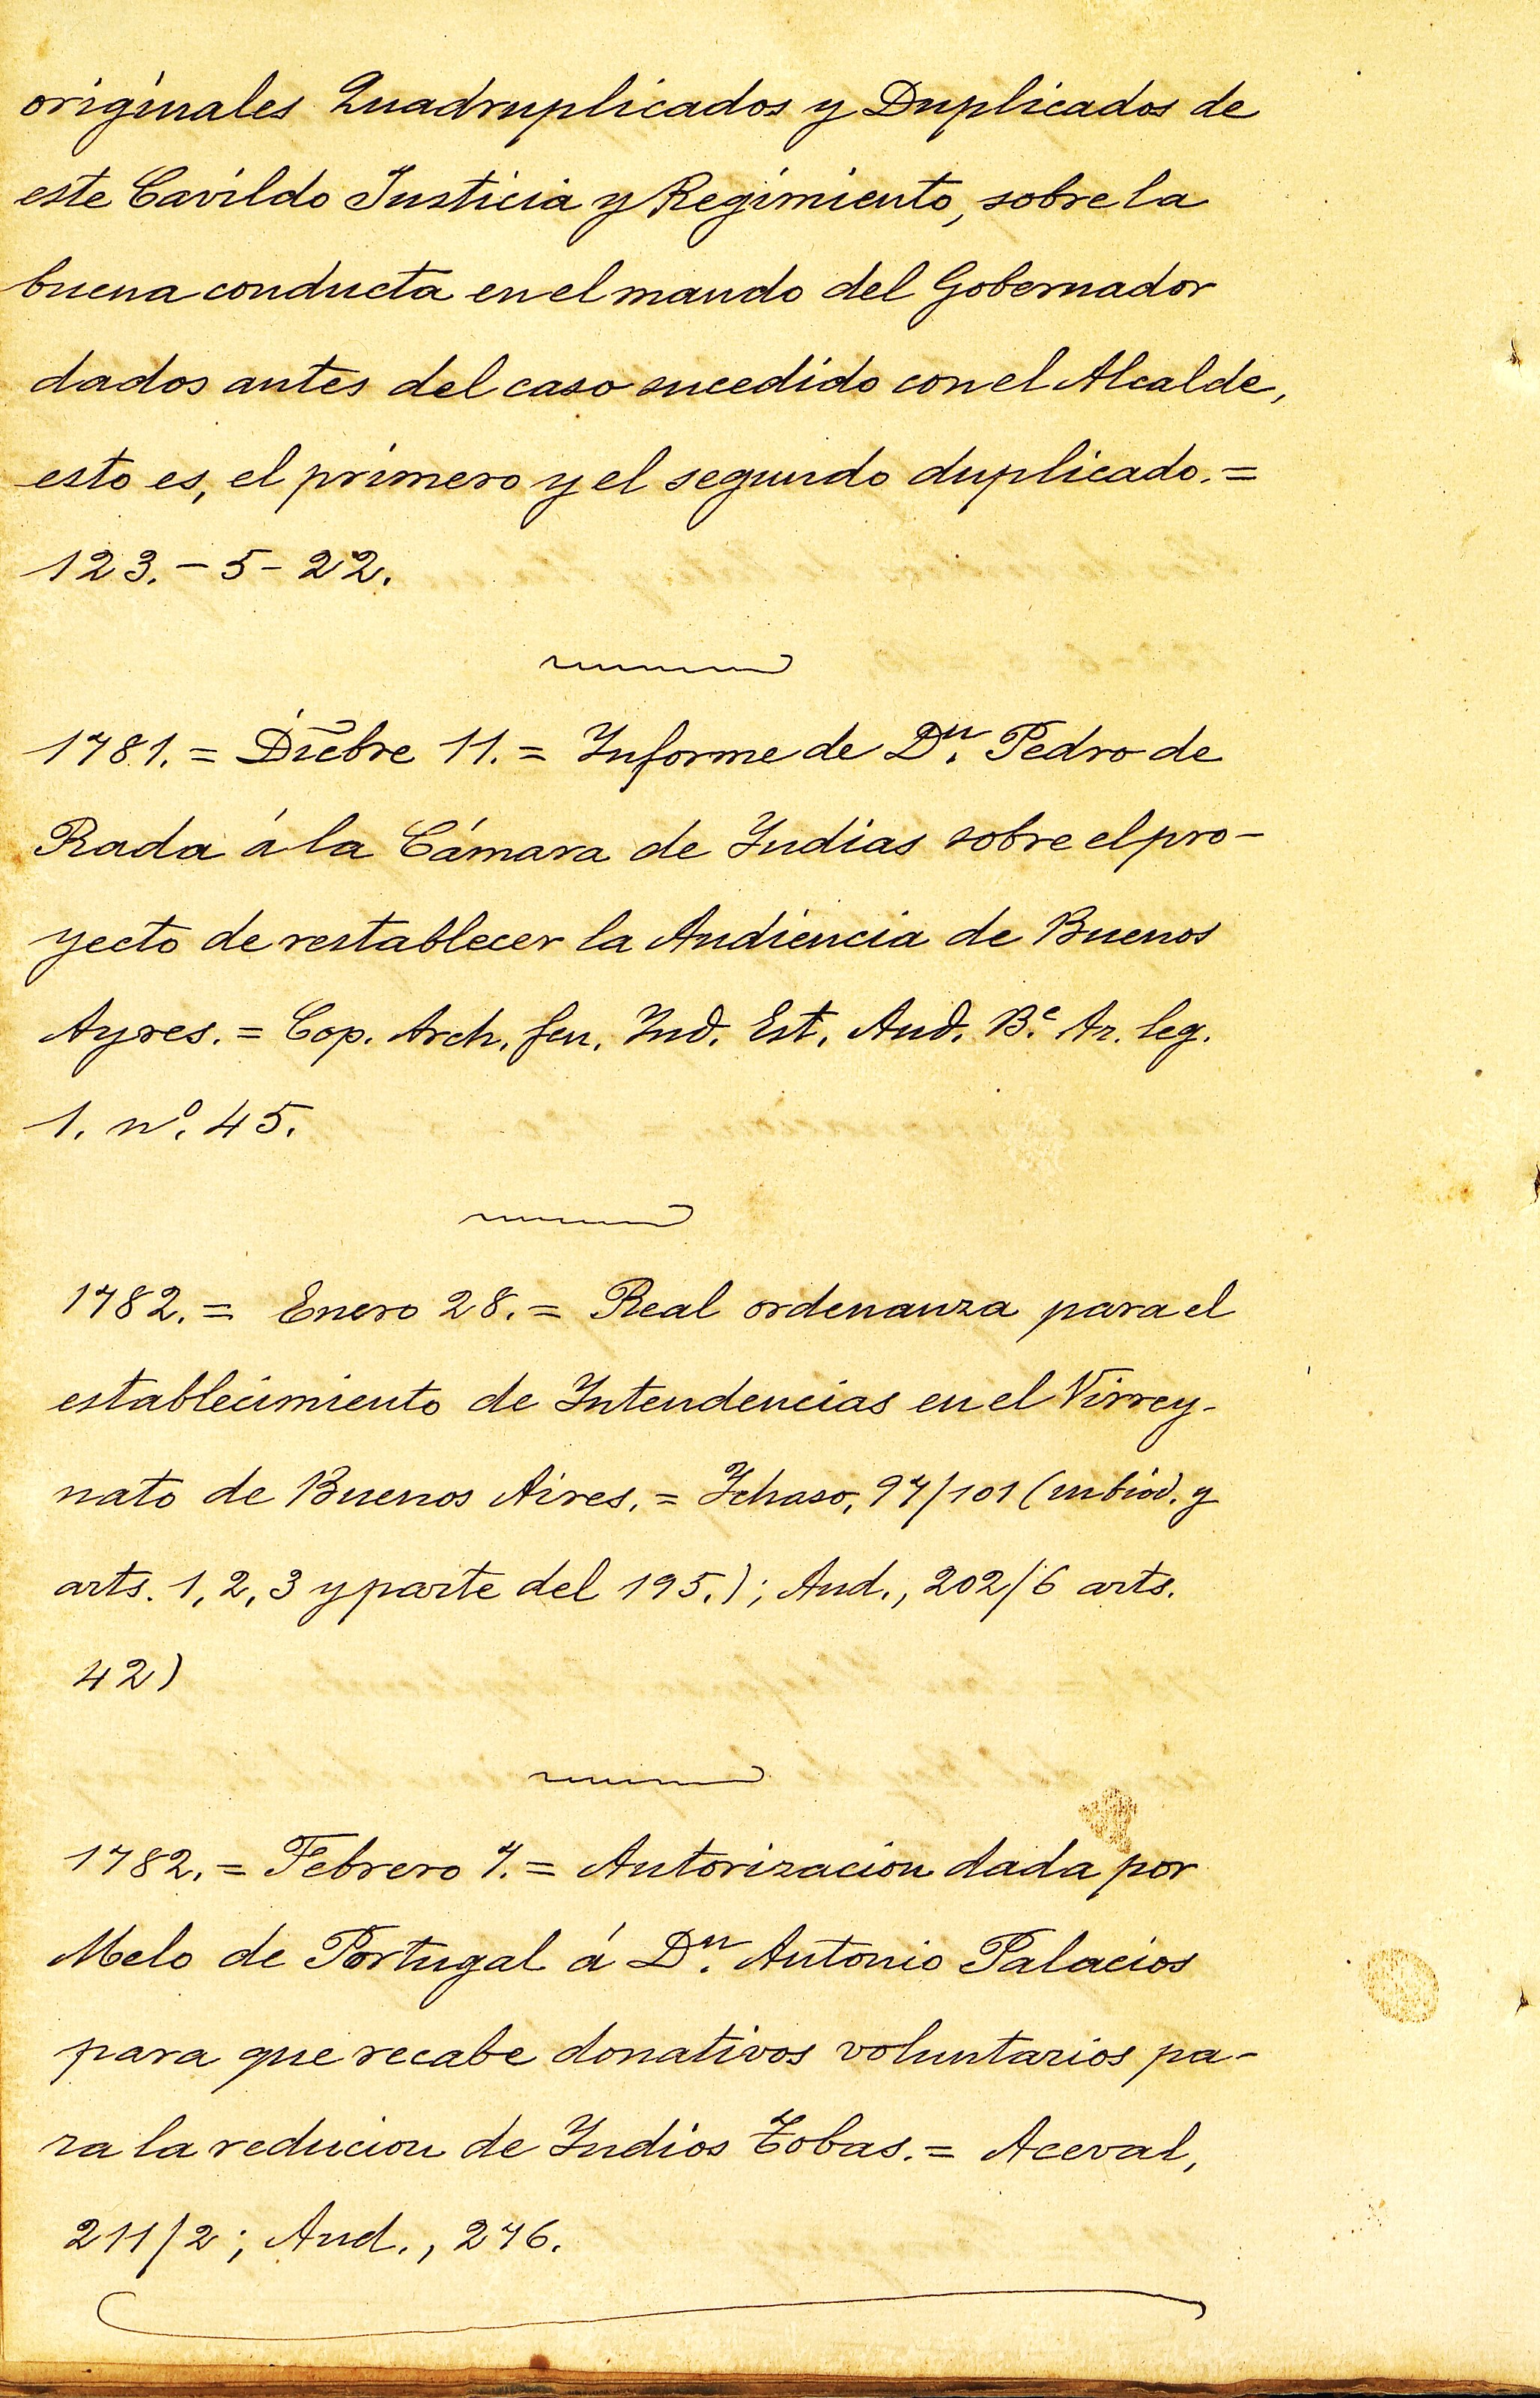 originales Quadruplicados y Duplicados de
este Cavildo Justicia y Regimiento, sobre la
buena conducta en el mando del Gobernador
dados antes del caso sucedido con el Alcalde,
esto es, el primero y el segundo duplicado. =
123. - 5 - 22.
1781. = Dicbre 11. = Informe de Dn. Pedro de
Rada á la Cámara de Indias sobre el pro-
yecto de restablecer la Audiencia de Buenos
Ayres. = Cop. Arch. Gen. Ind. Est. Aud. Bs. Ar. leg.
1. nº. 45.
1782. = Enero 28. = Real ordenanza para el
establecimiento de Intendencias en el Virrey-
nato de Buenos Aires. = Ichaso, 97/101 ( y
arts. 1, 2, 3 y parte del 195.); Aud., 202/6 arts.
42)
1782. = Febrero 7. = Autorizacion dada por
Melo de Portugal á Dn. Antonio Palacios
para que recabe donativos voluntarios pa-
ra la reducion de Indios Tobas. = Aceval,
211/2; Aud., 276.